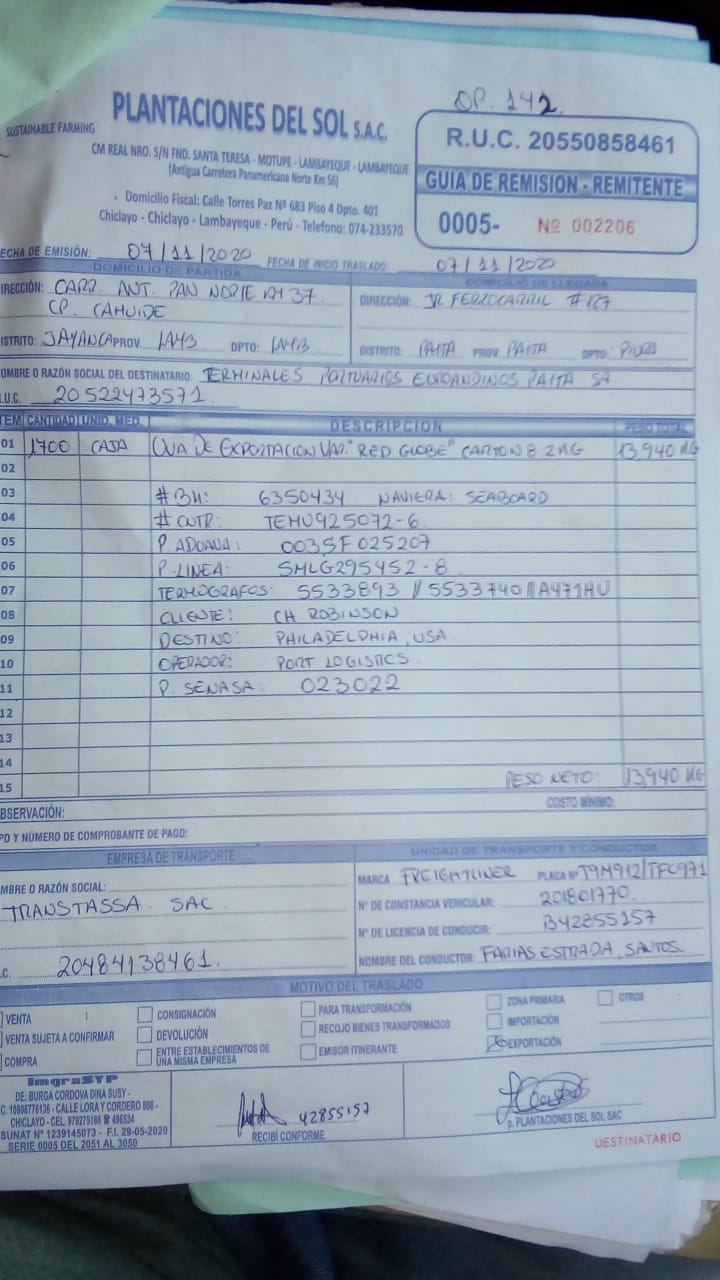 OP. 142.
SUSTAINABLE FARMING
PLANTACIONES DEL SOL S.A.C.
CM REAL NRO. S/N FND. SANTA TERESA - MOTUPE - LAMBAYEQUE - LAMBAYEQUE
(Antigua Carretera Panamericana Norte Km 56)
Domicilio Fiscal: Calle Torres Paz Nº 683 Piso 4 Dpto. 401
Chiclayo - Chiclayo - Lambayeque - Perú - Telefono: 074-233570
R.U.C. 20550858461
GUIA DE REMISION - REMITENTE
0005- Nº 002206
ECHA DE EMISIÓN: 07/11/2020 FECHA DE INICIO TRASLADO: 07/11/2020
DOMICILIO DE PARTIDA
IRECCIÓN: CARR. ANT. PAN NORTE KM 37
CP. CAHUIDE
ISTRITO: JAYANCA PROV. LAMB DPTO: LAMB
DOMICILIO DE LLEGADA
DIRECCIÓN: JR FERROCARRIL #127
DISTRITO: PAITA PROV. PAITA DPTO: PIURA
OMBRE O RAZÓN SOCIAL DEL DESTINATARIO: TERMINALES PORTUARIOS EUROANDINOS PAITA SA.
.U.C. 20522473571
TEM CANTIDAD UNID. MED. DESCRIPCION PESO TOTAL
01 1700 CAJA UVA DE EXPORTACION VAR. "RED GLOBE" CARTON 8.2KG 13,940 KG
02
03 #BK: 6350434 NAVIERA: SEABOARD
04 # CNTR: TEMU925072-6
05 P. ADUANA: 003SF025207
06 P. LINEA: SMLG295452-8
07 TERMOGRAFOS: 5533893 // 5533740 // A471AU
08 CLIENTE: CH ROBINSON
09 DESTINO: PHILADELPHIA, USA
10 OPERADOR: PORT LOGISTICS
11 P. SENASA: 023022
12
13
14
15 PESO NETO: 13,940 KG
BSERVACIÓN: COSTO MÍNIMO:
PO Y NÚMERO DE COMPROBANTE DE PAGO:
EMPRESA DE TRANSPORTE
MBRE O RAZÓN SOCIAL:
TRANSTASSA SAC
.C. 20484138461.
UNIDAD DE TRANSPORTE Y CONDUCTOR
MARCA FREIGHTLINER PLACA Nº T9M912/TFC971
Nº DE CONSTANCIA VEHICULAR: 201801770
Nº DE LICENCIA DE CONDUCIR: B42855157
NOMBRE DEL CONDUCTOR: FARIAS ESTRADA, SANTOS
MOTIVO DEL TRASLADO
VENTA CONSIGNACIÓN PARA TRANSFORMACIÓN ZONA PRIMARIA OTROS
VENTA SUJETA A CONFIRMAR DEVOLUCIÓN RECOJO BIENES TRANSFORMADOS IMPORTACIÓN
COMPRA ENTRE ESTABLECIMIENTOS DE UNA MISMA EMPRESA EMISOR ITINERANTE EXPORTACIÓN
ImgraSYP
DE: BURGA CORDOVA DINA SUSY -
C. 10806776136 - CALLE LORA Y CORDERO 806 -
CHICLAYO - CEL. 979275166 ☎ 496534
SUNAT Nº 1239145073 - F.I. 29-05-2020
SERIE 0005 DEL 2051 AL 3050
42855157
RECIBÍ CONFORME
p. PLANTACIONES DEL SOL SAC
DESTINATARIO